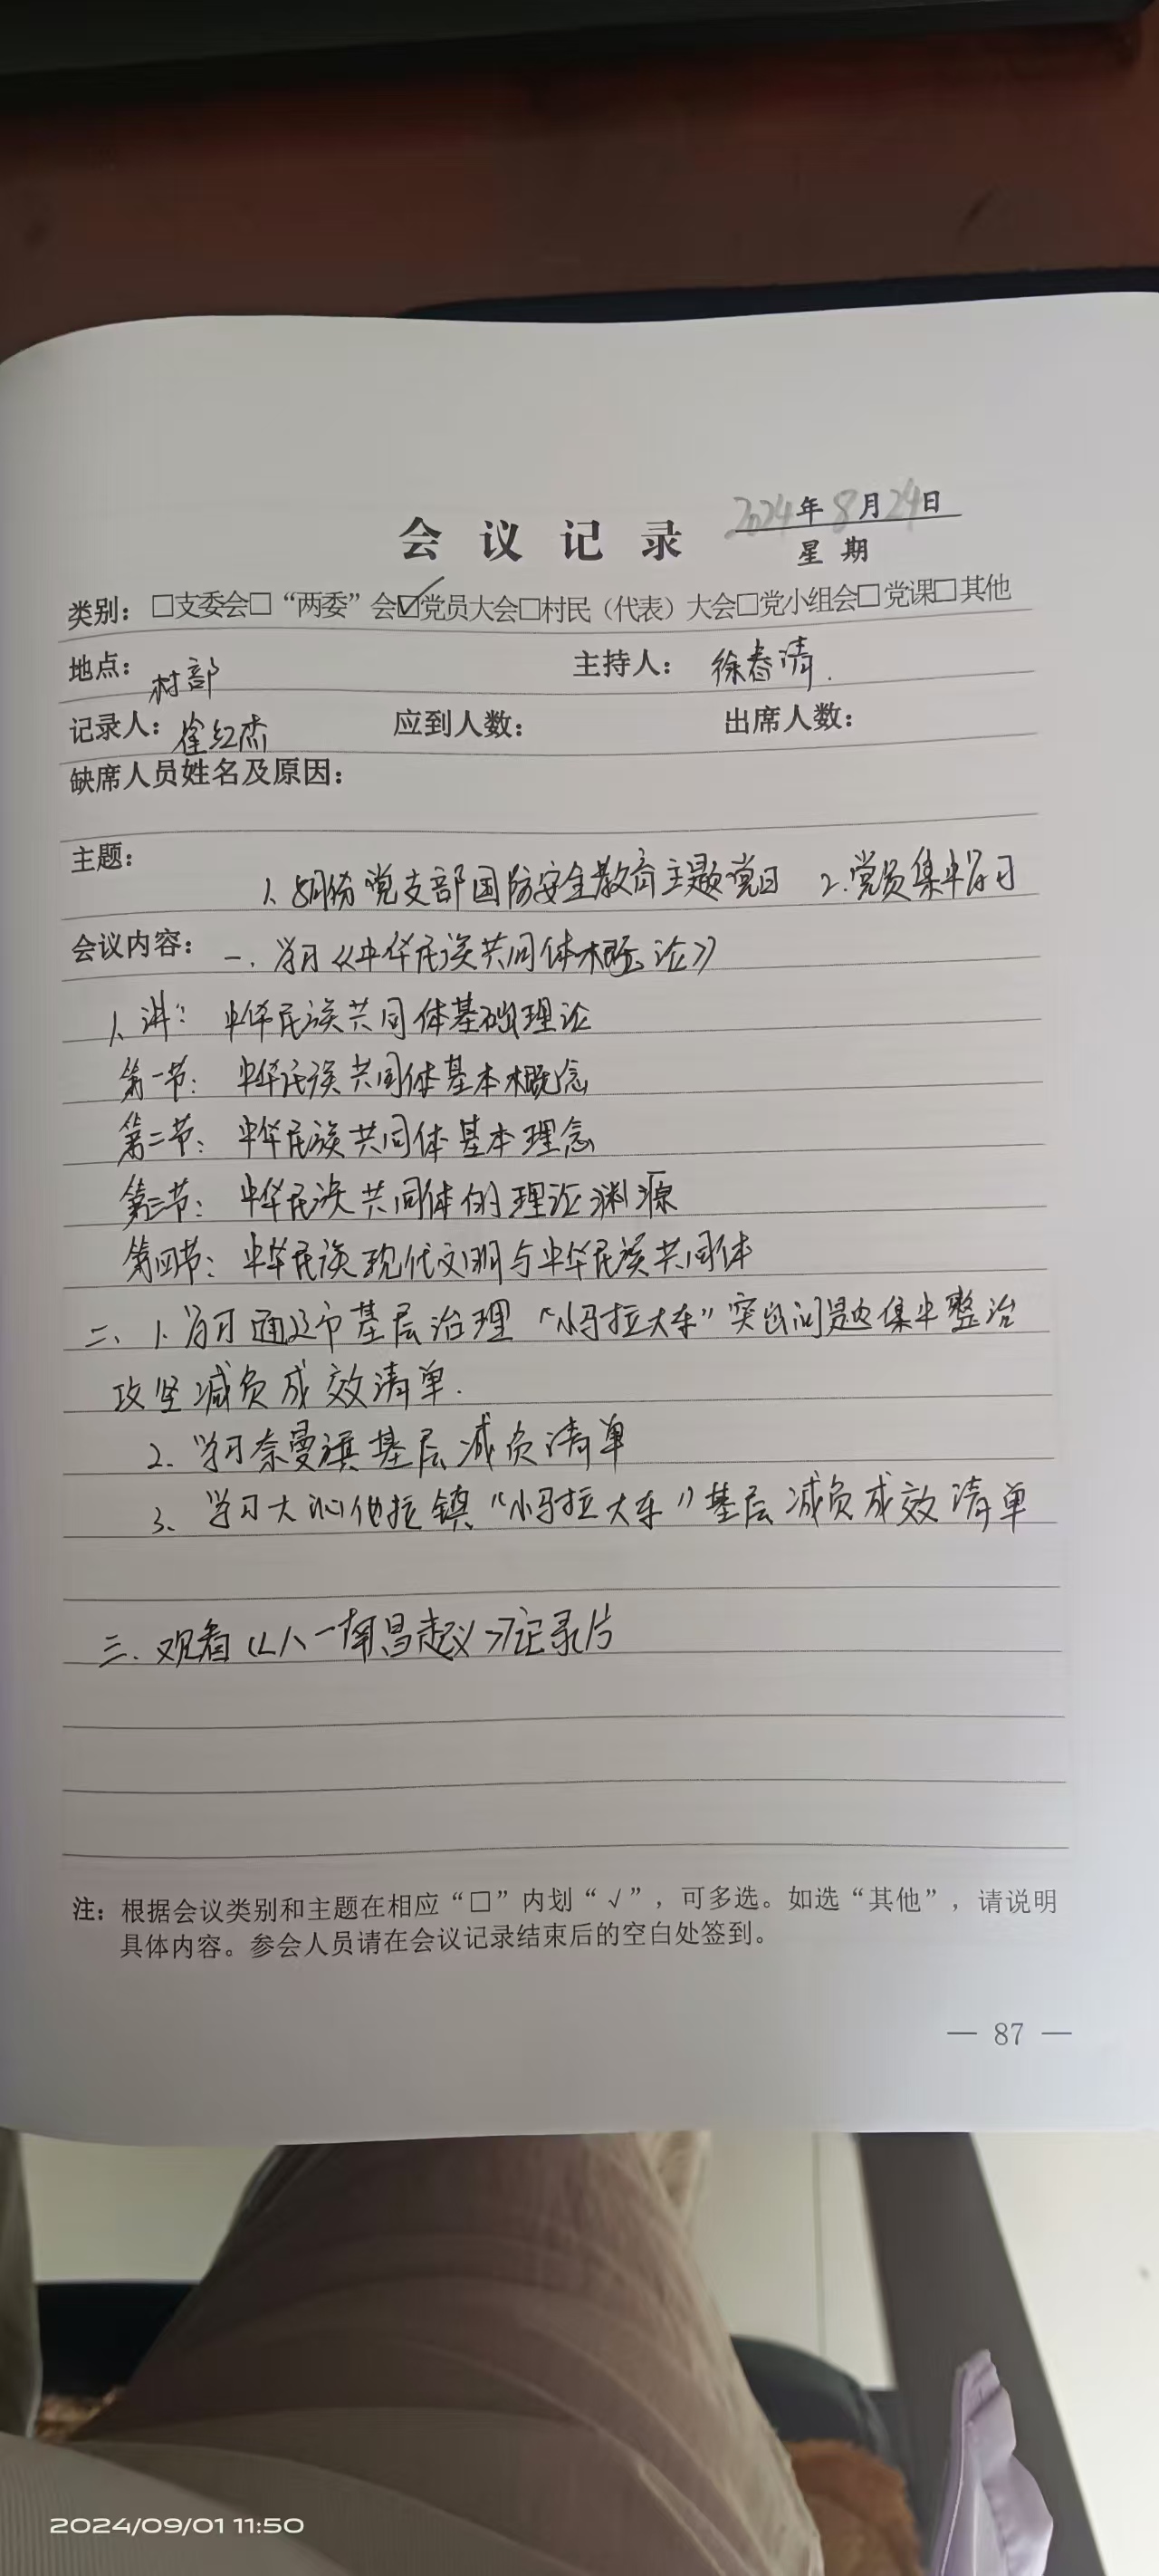 会议记录
2024年8月24日
星期
类别：□支委会□“两委”会☑党员大会□村民（代表）大会□党小组会□党课□其他
地点：村部 主持人：徐春清.
记录人：徐红杰 应到人数： 出席人数：
缺席人员姓名及原因：
主题：
1、8月份党支部国防安全教育主题党日 2.党员集中学习
会议内容：一、学习《中华民族共同体概论》
1、讲：中华民族共同体基础理论
第一节：中华民族共同体基本概念
第二节：中华民族共同体基本理念
第三节：中华民族共同体的理论渊源
第四节：中华民族现代文明与中华民族共同体
二、1.学习通辽市基层治理“小马拉大车”突出问题集中整治
攻坚减负成效清单.
2.学习奈曼旗基层减负清单
3、学习大沁他拉镇“小马拉大车”基层减负成效清单
三、观看《八一南昌起义》记录片
注：根据会议类别和主题在相应“□”内划“√”，可多选。如选“其他”，请说明
具体内容。参会人员请在会议记录结束后的空白处签到。
— 87 —
2024/09/01 11:50